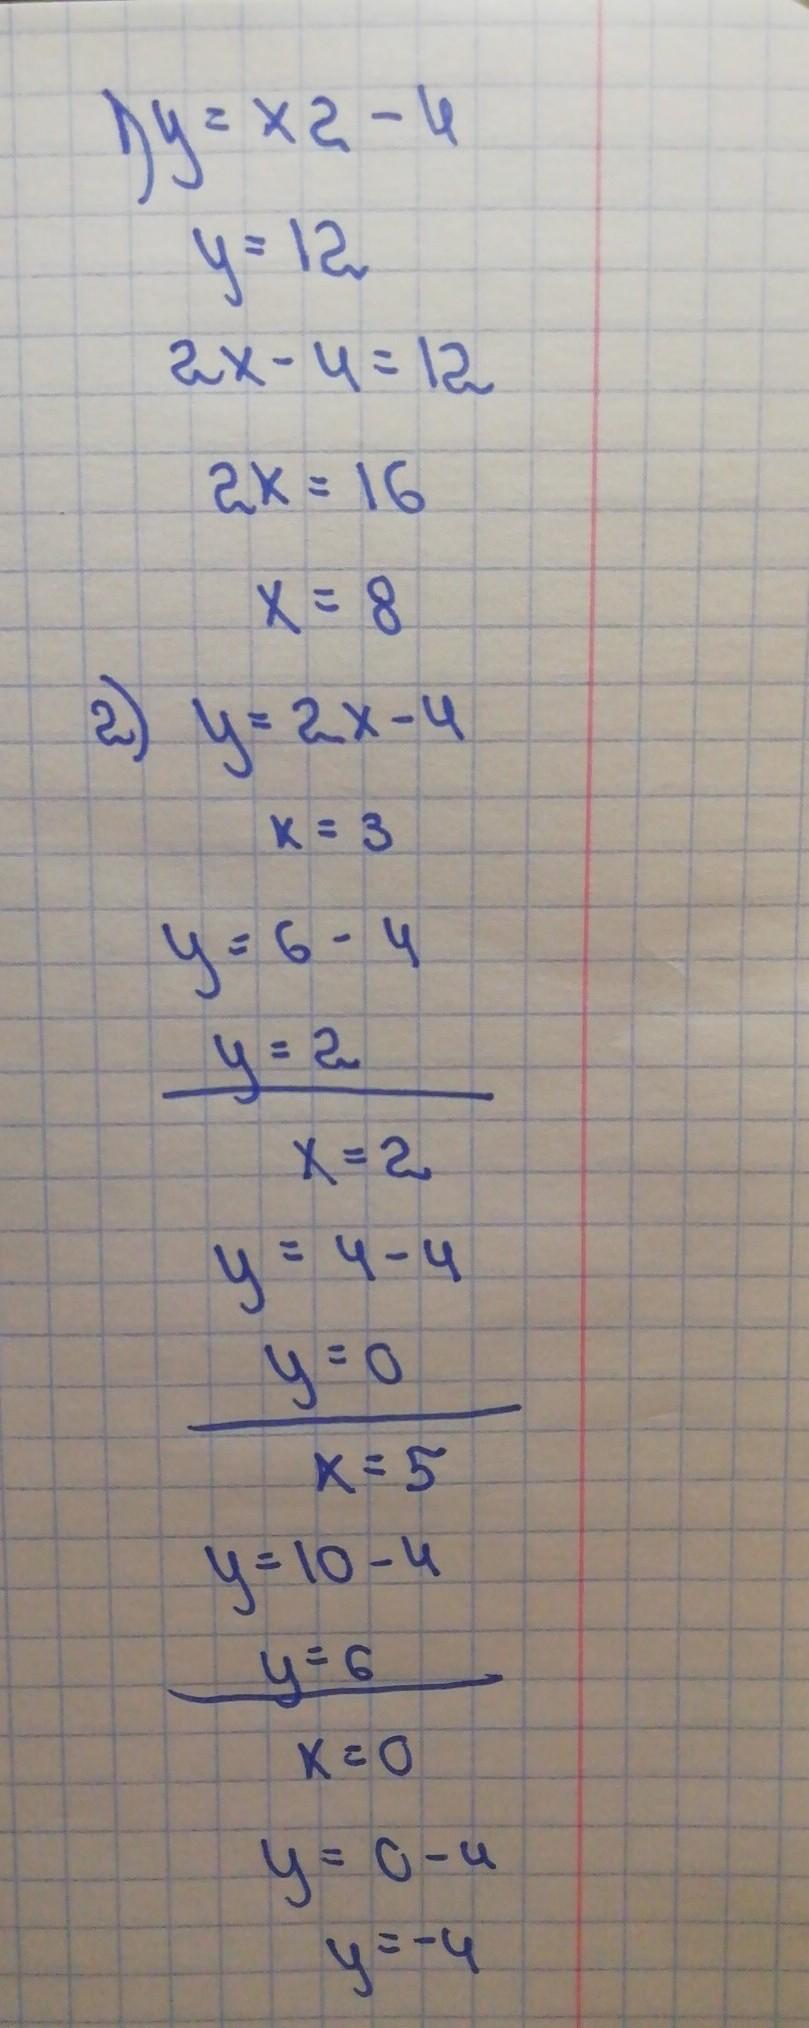 1) y = x2 - 4
y = 12
2x - 4 = 12
2x = 16
x = 8
2) y = 2x - 4
x = 3
y = 6 - 4
y = 2
x = 2
y = 4 - 4
y = 0
x = 5
y = 10 - 4
y = 6
x = 0
y = 0 - 4
y = -4